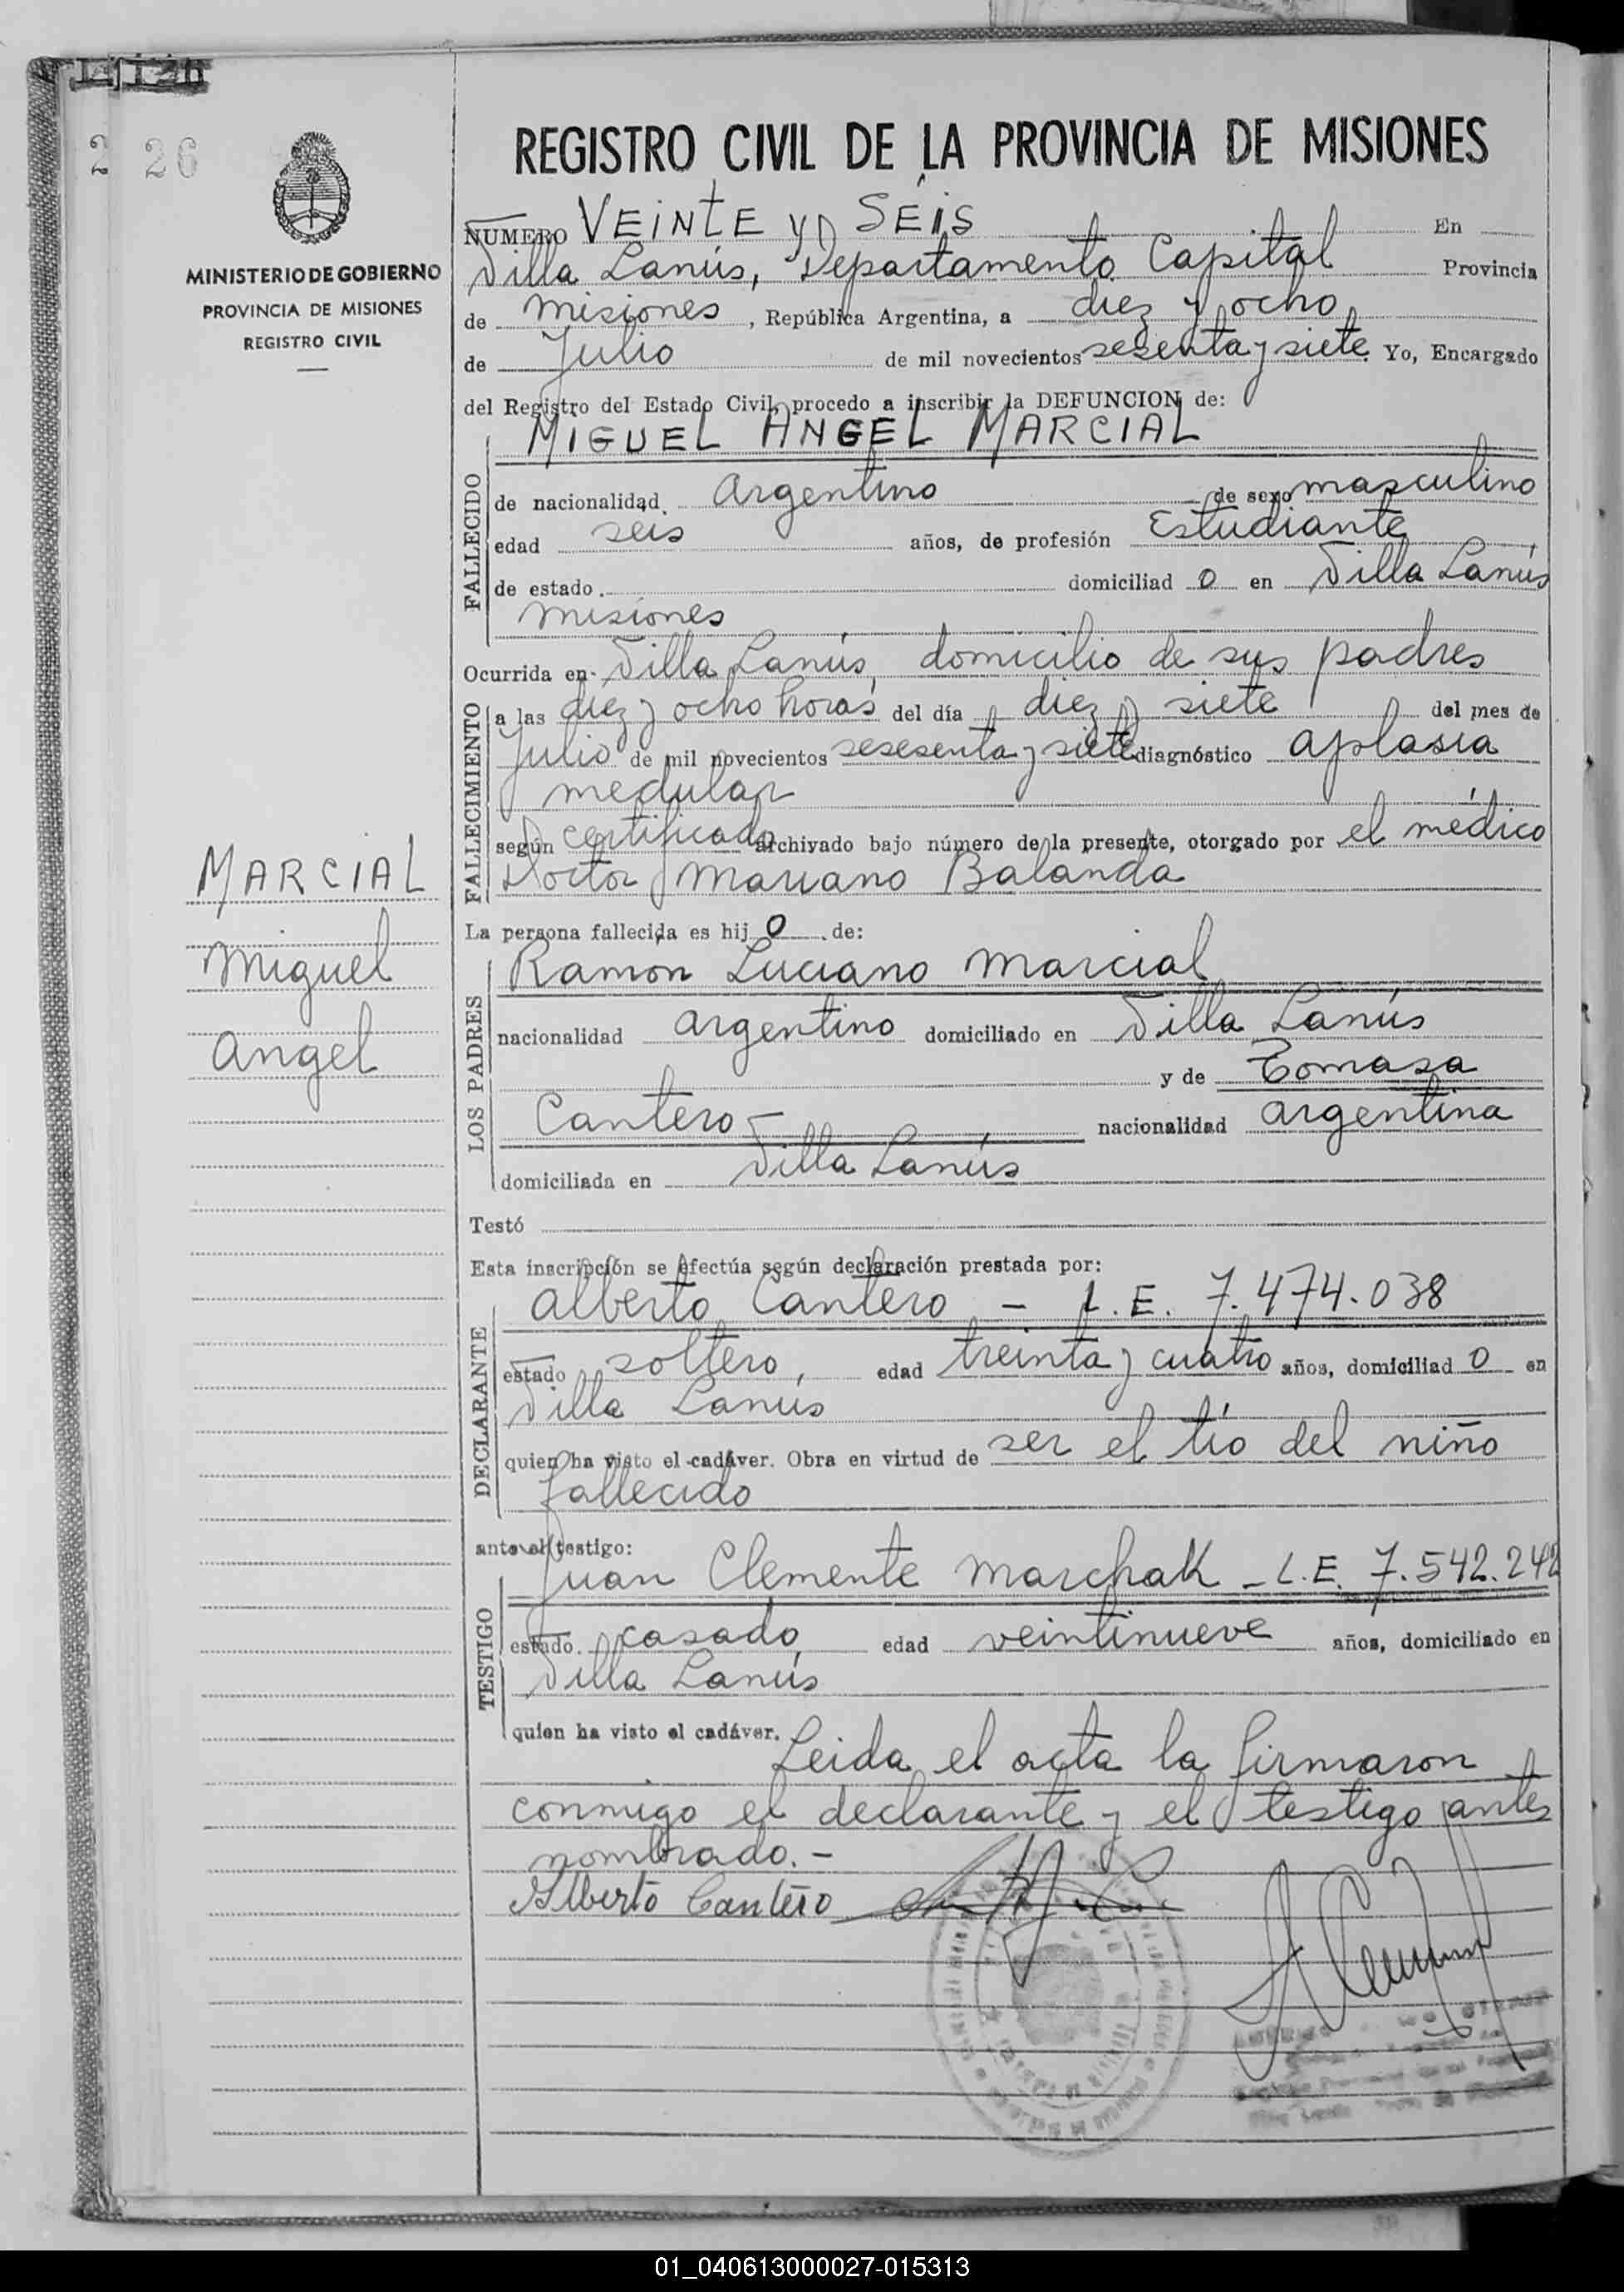 26
MINISTERIO DE GOBIERNO
PROVINCIA DE MISIONES
REGISTRO CIVIL
MARCIAL
Miguel
Angel
REGISTRO CIVIL DE LA PROVINCIA DE MISIONES
NUMERO VEINTE y SEIS En
Villa Lanús, Departamento Capital Provincia
de Misiones, República Argentina, a diez y ocho
de Julio de mil novecientos sesenta y siete. Yo, Encargado
del Registro del Estado Civil, procedo a inscribir la DEFUNCION de:
MIGUEL ANGEL MARCIAL
FALLECIDO
de nacionalidad Argentino de sexo masculino
edad seis años, de profesión Estudiante
de estado domiciliad o en Villa Lanús
Misiones
Ocurrida en Villa Lanús, domicilio de sus padres
FALLECIMIENTO
a las diez y ocho horas del día diez y siete del mes de
Julio de mil novecientos sesesenta y siete diagnóstico aplasia
medular
según certificado archivado bajo número de la presente, otorgado por el médico
Doctor Mariano Balanda
La persona fallecida es hij o de:
LOS PADRES
Ramon Luciano Marcial
nacionalidad argentino domiciliado en Villa Lanús
y de Tomasa
Cantero- nacionalidad argentina
domiciliada en Villa Lanús
Testó
Esta inscripción se efectúa según declaración prestada por:
DECLARANTE
Alberto Cantero - L.E. 7.474.038
estado soltero, edad treinta y cuatro años, domiciliad o en
Villa Lanús
quien ha visto el cadáver. Obra en virtud de ser el tío del niño
fallecido
ante el testigo:
TESTIGO
Juan Clemente Marchak - L.E. 7.542.242
estado casado edad veintinueve años, domiciliado en
Villa Lanús
quien ha visto el cadáver.
Leida el acta la firmaron
conmigo el declarante y el testigo antes
nombrado.-
Alberto Cantero
01_040613000027-015313